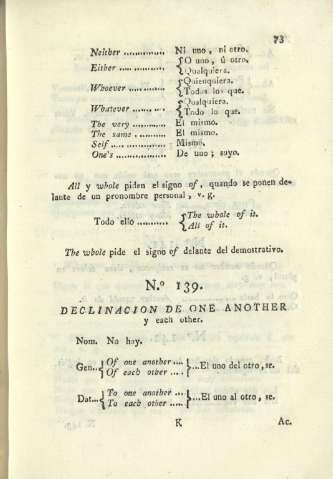 73
Neither .............. Ni uno , ni otro.
Either .............. { O uno , ú otro.
Qualquiera.
Whoever ........... { Quienquiera.
Todos los que.
Whatever .......... { Qualquiera.
Todo lo que.
The very ........... El mismo.
The same ........... El mismo.
Self ................. Mismo.
One's ................ De uno ; suyo.
All y whole piden el signo of , quando se ponen de-
lante de un pronombre personal , v. g.
Todo ello .......... { The whole of it.
All of it.
The whole pide el signo of delante del demostrativo.
N.º 139.
DECLINACION DE ONE ANOTHER
y each other.
Nom. No hay.
Gen.. { Of one another ...
Of each other .... } ...El uno del otro, se.
Dat... { To one another ...
To each other ..... } ...El uno al otro, se.
K Ac.